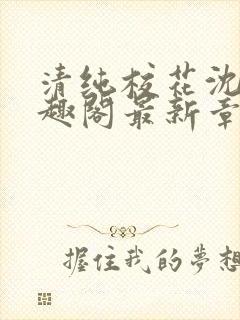 清纯校花沈
趣阁最新章
握住我的夢想